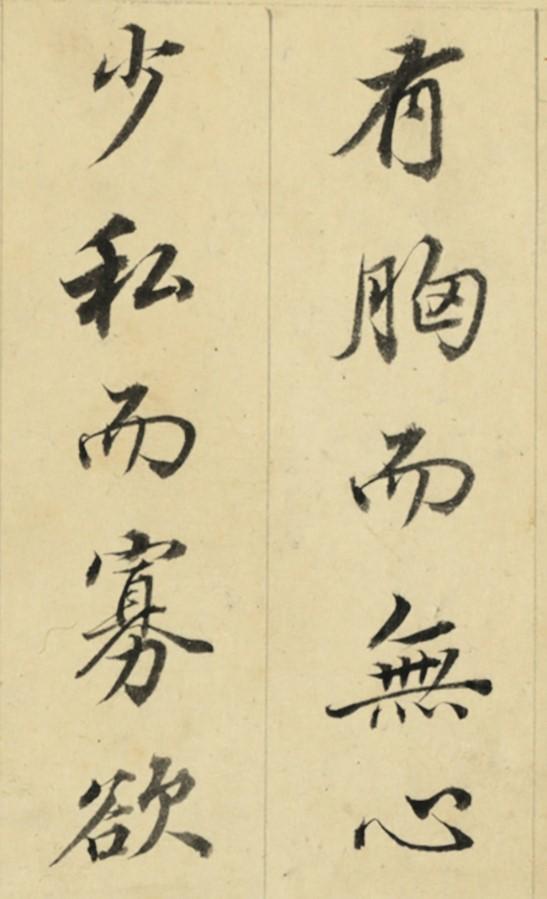 有胸而無心
少私而寡欲